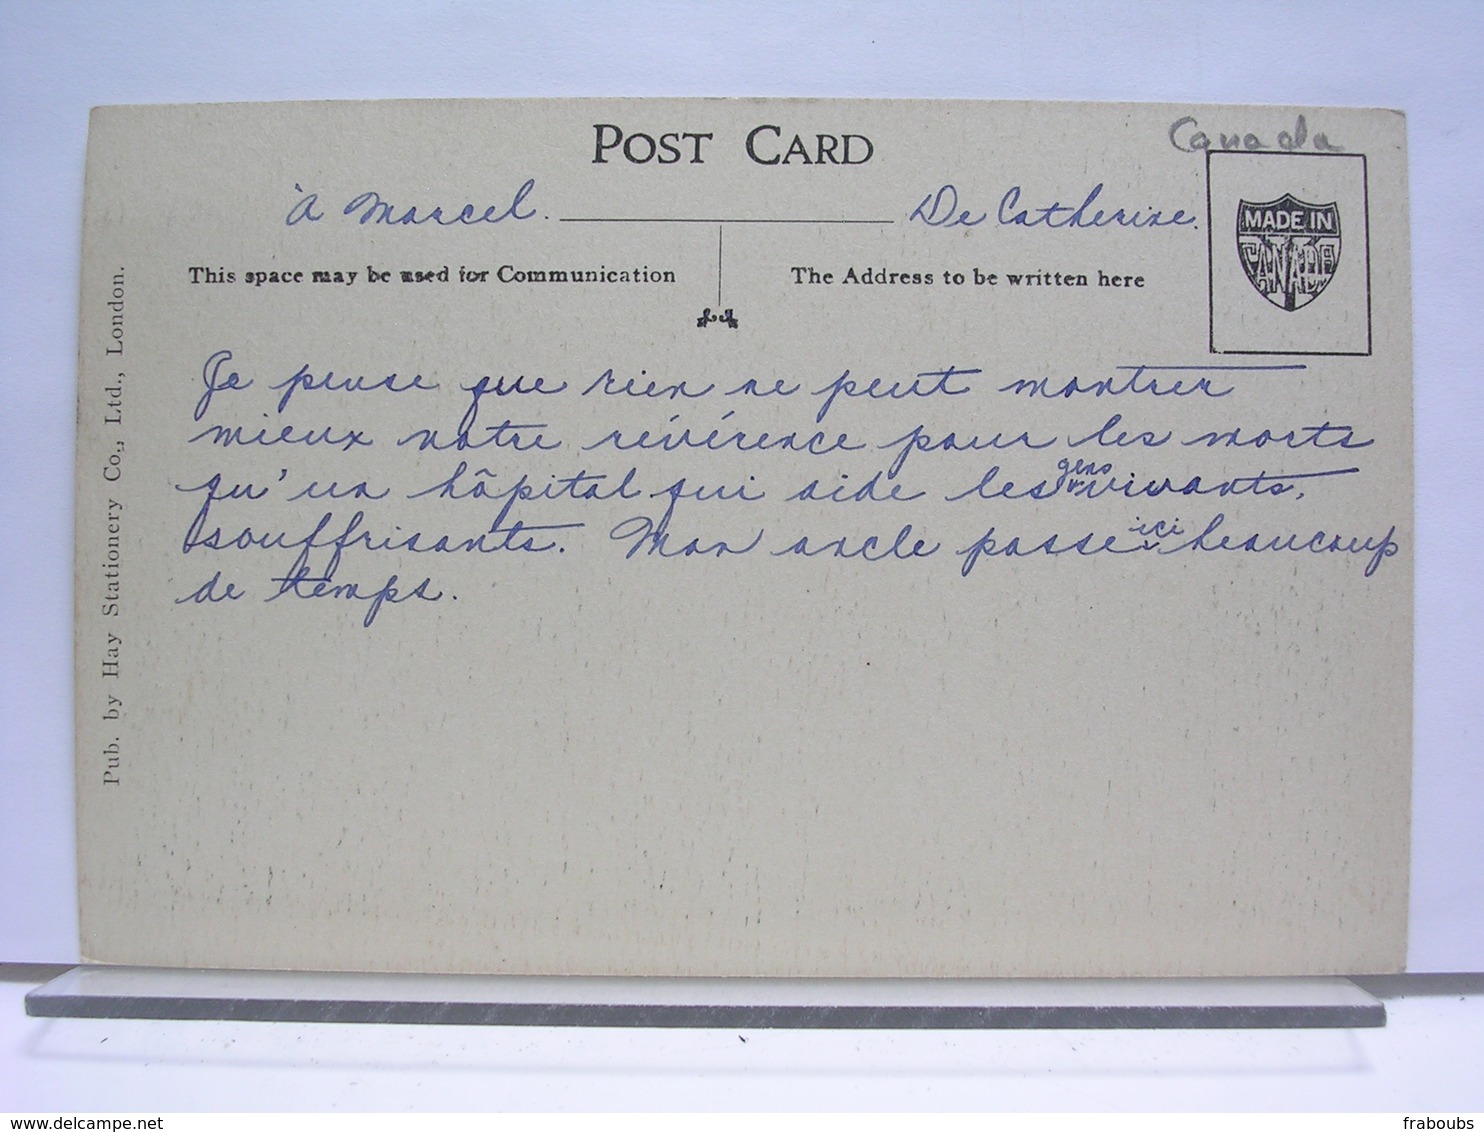 POST CARD
Canada
à Marcel.
De Catherine.
MADE IN
CANADA
This space may be used for Communication
The Address to be written here
Je pense que rien ne peut montrer
mieux notre révérence pour les morts
qu'un hôpital qui aide les gens vivants,
souffrisants. Mon oncle passe ici beaucoup
de temps.
Pub. by Hay Stationery Co., Ltd., London.
www.delcampe.net
fraboubs